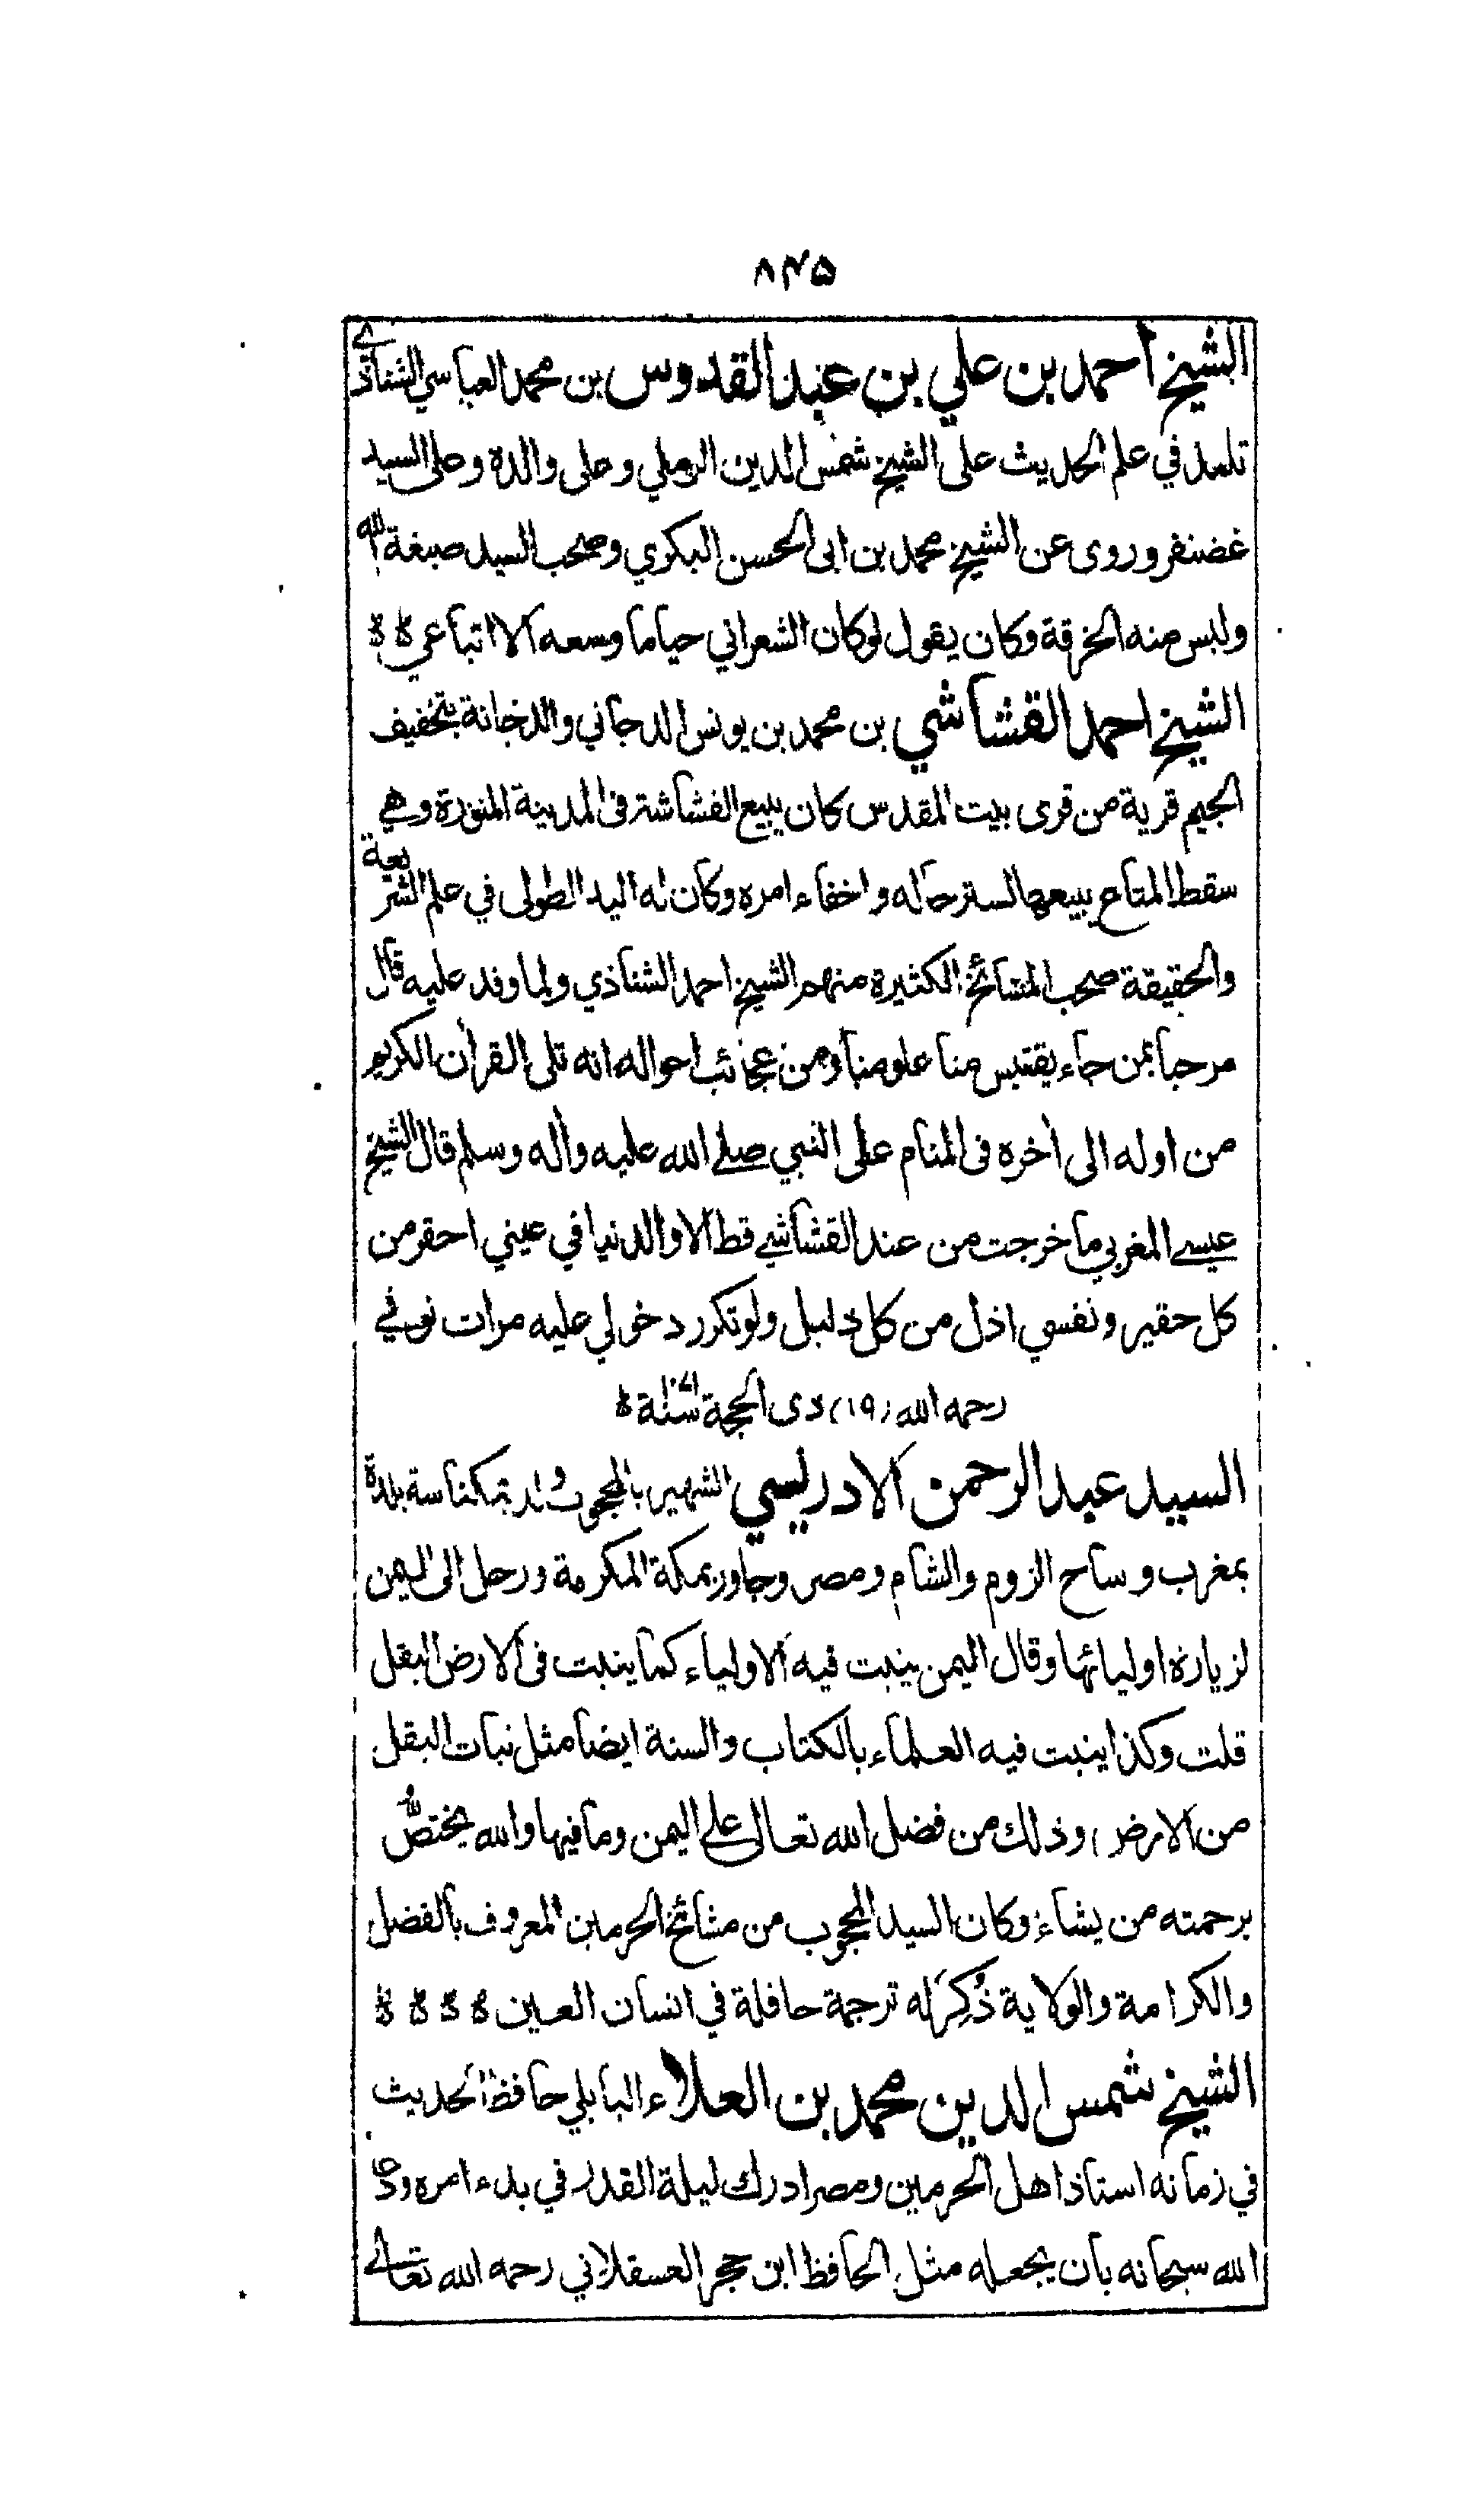 ۸۴۵
الشيخ احمد بن علي بن عبد القدوس بن محمد العباسي الشناذے
تلمذ في علم الحديث على الشيخ شمس الدين الرملي وعلى والده وعلى السيد
غضنفر وروى عن الشيخ محمد بن ابى الحسن البكري وصحب السيد صبغة الله
ولبس منه الخرقة وكان يقول لو كان الشعراني حيا ما وسعه الا اتباعي ۀ ۀ
الشيخ احمد القشاشي بن محمد بن يونس الدجاني والدجانة بتخفيف
الجيم قرية من قرى بيت المقدس كان يبيع القشاشة فى المدينة المنورة وهي
سقط المتاع يبيعها لستر حاله واخفاء امره وكان له اليد الطولى في علم الشريعة
والحقيقة صحب المشائخ الكثيرة منهم الشيخ احمد الشناذي ولما وفد عليه قال
مرحبا بمن جاء يقتبس منا علومنا ومن عجائب احواله انه تلى القرأن الكريم
من اوله الى أخره فى المنام على النبي صلے الله عليه وأله وسلم قال الشيخ
عيسے المغربي ما خرجت من عند القشاشے قط الا والدنيا في عيني احقر من
كل حقير ونفسي اذل من كل ذليل ولو تكرر دخولي عليه مرات توفي
رحمه الله (۱۹) ذى الحجة سنة ۀ
السيد عبد الرحمن الادريسي الشهير بالمحجوب ولد بمكناسة بلدة
بمغرب وساح الروم والشام ومصر وجاور بمكة المكرمة ورحل الى اليمن
لزيارة اوليائها وقال اليمن ينبت فيه الاولياء كما ينبت فى الارض البقل
قلت وكذا ينبت فيه العلماء بالكتاب والسنة ايضا مثل نبات البقل
من الارض وذلك من فضل الله تعالى علے اليمن وما فيها والله يختصُّ
برحمته من يشاء وكان السيد المحجوب من مشائخ الحرمين المعروف بالفضل
والكرامة والولاية ذُكِرَ له ترجمة حافلة في انسان العين ۀ ۀ ۀ ۀ
الشيخ شمس الدين محمد بن العلاء البابلي حافظ الحديث
في زمانه استاذ اهل الحرمين ومصر ادرك ليلة القدر في بدء امره ودعا
الله سبحانه بان يجعله مثل الحافظ ابن حجر العسقلاني رحمه الله تعالے